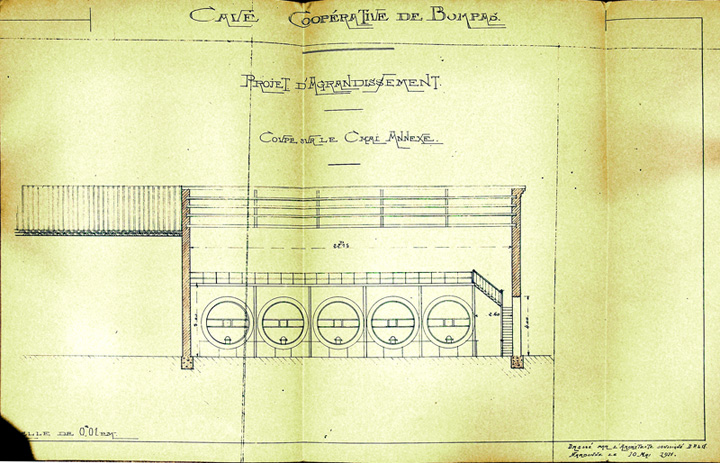 CAVE COOPÉRATIVE DE BOMPAS.
PROJET D'AGRANDISSEMENT.
COUPE SUR LE CHAI ANNEXE.
DE 0,01 PM
DRESSÉ PAR L'ARCHITECTE SOUSSIGNÉ D.P.L.G.
MARSEILLE LE 30 MAI